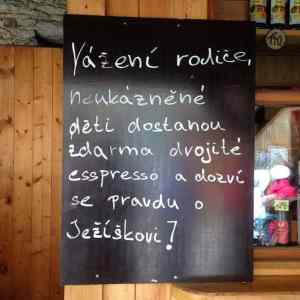 Vážení rodiče,
neukázněné
děti dostanou
zdarma dvojité
esspresso a dozví
se pravdu o
Ježíškovi!